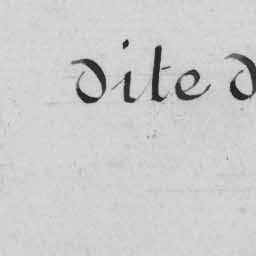 dite d